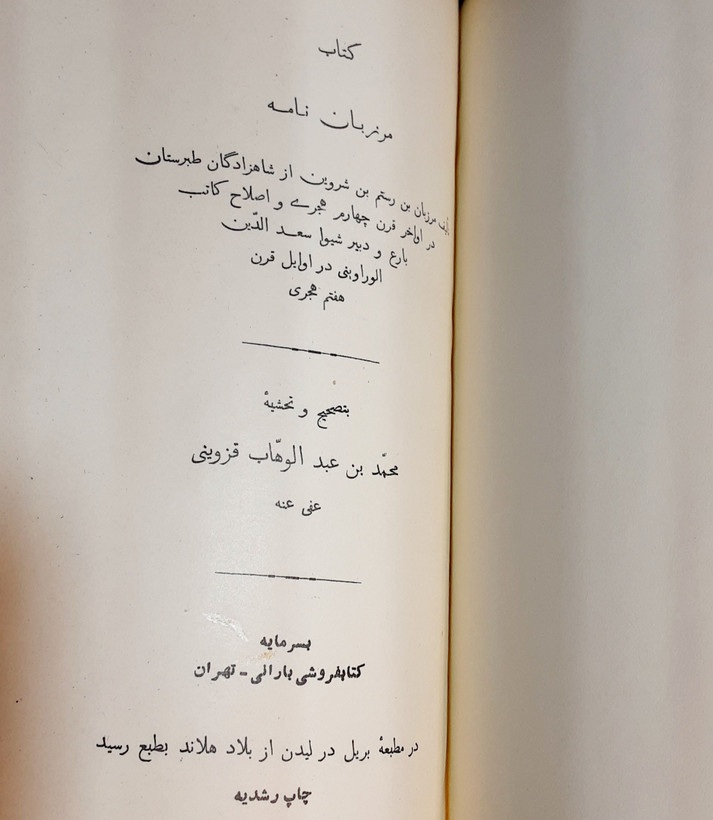 کتاب
مرزبان نامه
تألیف مرزبان بن رستم بن شروین از شاهزادگان طبرستان
در اواخر قرن چهارم هجری و اصلاح کاتب
بارع و دبیر شیوا سعد الدّین
الوراوینی در اوایل قرن
هفتم هجری
بتصحیح و تحشیهٔ
محمّد بن عبد الوهّاب قزوینی
عفی عنه
بسرمایه
کتابفروشی بارانی - تهران
در مطبعهٔ بریل در لیدن از بلاد هلاند بطبع رسید
چاپ رشدیه